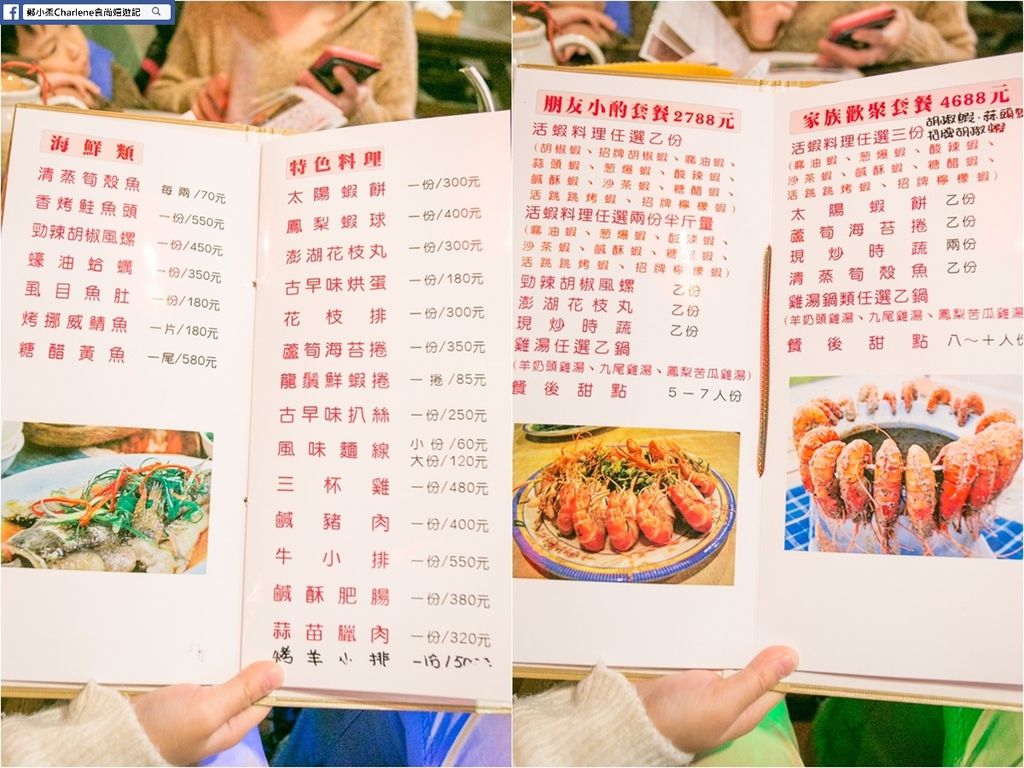 鄭小柔Charlene食尚嬉遊記
海鮮類
清蒸筍殼魚 每兩/70元
香烤鮭魚頭 一份/550元
勁辣胡椒風螺 一份/450元
蠔油蛤蠣 一份/350元
虱目魚肚 一份/180元
烤挪威鯖魚 一片/180元
糖醋黃魚 一尾/580元
特色料理
太陽蝦餅 一份/300元
鳳梨蝦球 一份/400元
澎湖花枝丸 一份/300元
古早味烘蛋 一份/180元
花枝排 一份/300元
蘆筍海苔捲 一份/350元
龍鬚鮮蝦捲 一捲/85元
古早味扒絲 一份/250元
風味麵線 小份/60元
大份/120元
三杯雞 一份/480元
鹹豬肉 一份/400元
牛小排 一份/550元
鹹酥肥腸 一份/380元
蒜苗臘肉 一份/320元
烤羊小排 一份/150
朋友小酌套餐2788元
活蝦料理任選乙份
(胡椒蝦、招牌胡椒蝦、麻油蝦、
蒜頭蝦、葱爆蝦、酸辣蝦、
鹹酥蝦、沙茶蝦、糖醋蝦、
活跳跳烤蝦、招牌檸檬蝦)
活蝦料理任選兩份半斤量
(麻油蝦、葱爆蝦、酸辣蝦、
沙茶蝦、鹹酥蝦、糖醋蝦、
活跳跳烤蝦、招牌檸檬蝦)
勁辣胡椒風螺 乙份
澎湖花枝丸 乙份
現炒時蔬 乙份
雞湯任選乙鍋
(羊奶頭雞湯、九尾雞湯、鳳梨苦瓜雞湯)
餐後甜點 5-7人份
家族歡聚套餐4688元
胡椒蝦.蒜頭蝦
活蝦料理任選三份 招牌胡椒蝦
(麻油蝦、葱爆蝦、酸辣蝦、
沙茶蝦、鹹酥蝦、糖醋蝦、
活跳跳烤蝦、招牌檸檬蝦)
太陽蝦餅 乙份
蘆筍海苔捲 乙份
現炒時蔬 兩份
清蒸筍殼魚 乙份
雞湯鍋類任選乙鍋
(羊奶頭雞湯、九尾雞湯、鳳梨苦瓜雞湯
餐後甜點 八～十人份